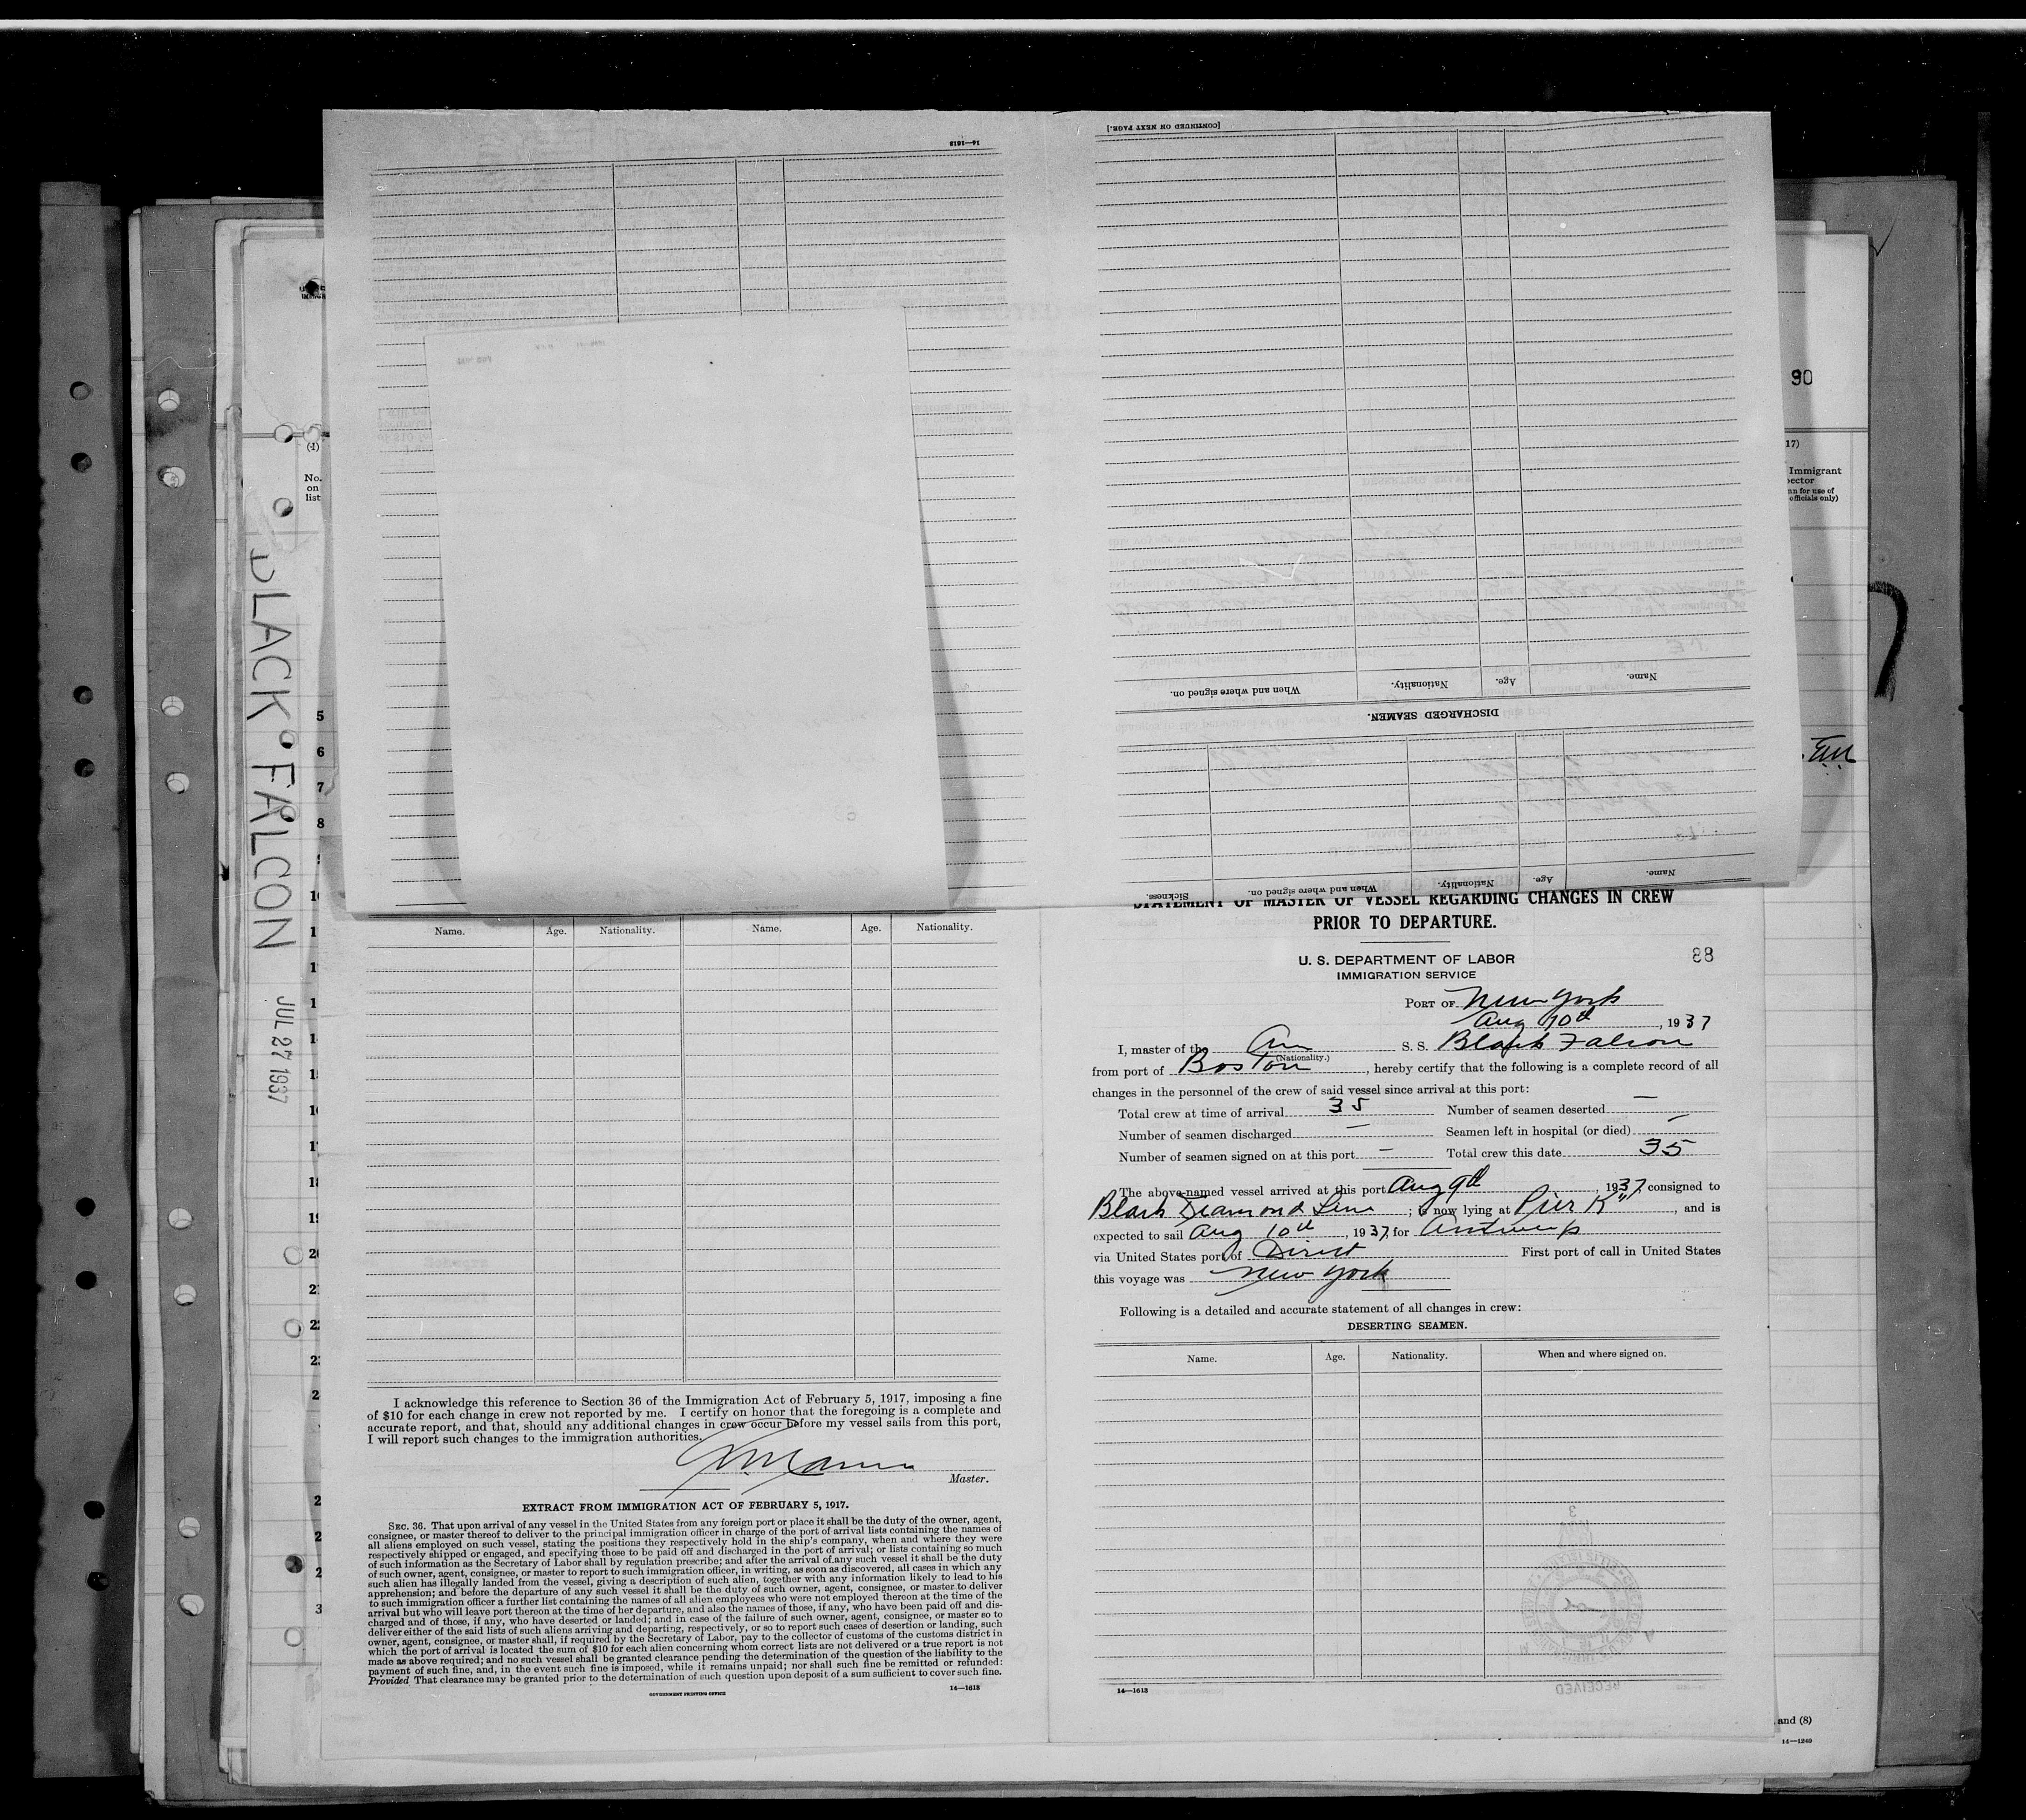 14—1613
[CONTINUED ON NEXT PAGE.]
When and where signed on.
Nationality.
Age.
Name.
DISCHARGED SEAMEN.
Sickness.
When and where signed on.
Nationality.
Age.
Name.
BLACK FALCON
JUL 27 1937
(4)
No.
on
list
5
6
7
8
90
17)
Immigrant
officials only)
and (8)
14—1240
Name.
Age.
Nationality.
Name.
Age.
Nationality.
I acknowledge this reference to Section 36 of the Immigration Act of February 5, 1917, imposing a fine
of $10 for each change in crew not reported by me. I certify on honor that the foregoing is a complete and
accurate report, and that, should any additional changes in crew occur before my vessel sails from this port,
I will report such changes to the immigration authorities.
Master.
EXTRACT FROM IMMIGRATION ACT OF FEBRUARY 5, 1917.
SEC. 36. That upon arrival of any vessel in the United States from any foreign port or place it shall be the duty of the owner, agent,
consignee, or master thereof to deliver to the principal immigration officer in charge of the port of arrival lists containing the names of
all aliens employed on such vessel, stating the positions they respectively hold in the ship's company, when and where they were
respectively shipped or engaged, and specifying those to be paid off and discharged in the port of arrival; or lists containing so much
of such information as the Secretary of Labor shall by regulation prescribe; and after the arrival of any such vessel it shall be the duty
of such owner, agent, consignee, or master to report to such immigration officer, in writing, as soon as discovered, all cases in which any
such alien has illegally landed from the vessel, giving a description of such alien, together with any information likely to lead to his
apprehension; and before the departure of any such vessel it shall be the duty of such owner, agent, consignee, or master to deliver
to such immigration officer a further list containing the names of all alien employees who were not employed thereon at the time of the
arrival but who will leave port thereon at the time of her departure, and also the names of those, if any, who have been paid off and dis-
charged and of those, if any, who have deserted or landed; and in case of the failure of such owner, agent, consignee, or master so to
deliver either of the said lists of such aliens arriving and departing, respectively, or so to report such cases of desertion or landing, such
owner, agent, consignee, or master shall, if required by the Secretary of Labor, pay to the collector of customs of the customs district in
which the port of arrival is located the sum of $10 for each alien concerning whom correct lists are not delivered or a true report is not
made as above required; and no such vessel shall be granted clearance pending the determination of the question of the liability to the
payment of such fine, and, in the event such fine is imposed, while it remains unpaid; nor shall such fine be remitted or refunded:
Provided That clearance may be granted prior to the determination of such question upon deposit of a sum sufficient to cover such fine.
GOVERNMENT PRINTING OFFICE
14—1613
STATEMENT OF MASTER OF VESSEL REGARDING CHANGES IN CREW
PRIOR TO DEPARTURE.
U. S. DEPARTMENT OF LABOR
IMMIGRATION SERVICE
88
PORT OF New York
Aug 10th, 1937
I, master of the Am S. S. Black Falcon
(Nationality.)
from port of Boston, hereby certify that the following is a complete record of all
changes in the personnel of the crew of said vessel since arrival at this port:
Total crew at time of arrival 35 Number of seamen deserted —
Number of seamen discharged — Seamen left in hospital (or died) —
Number of seamen signed on at this port — Total crew this date 35
The above-named vessel arrived at this port Aug 9th, 1937, consigned to
Black Diamond Line; is now lying at Pier K", and is
expected to sail Aug 10th, 1937, for Antwerp
via United States port of Direct First port of call in United States
this voyage was New York
Following is a detailed and accurate statement of all changes in crew:
DESERTING SEAMEN.
Name.
Age.
Nationality.
When and where signed on.
14—1613
RECEIVED